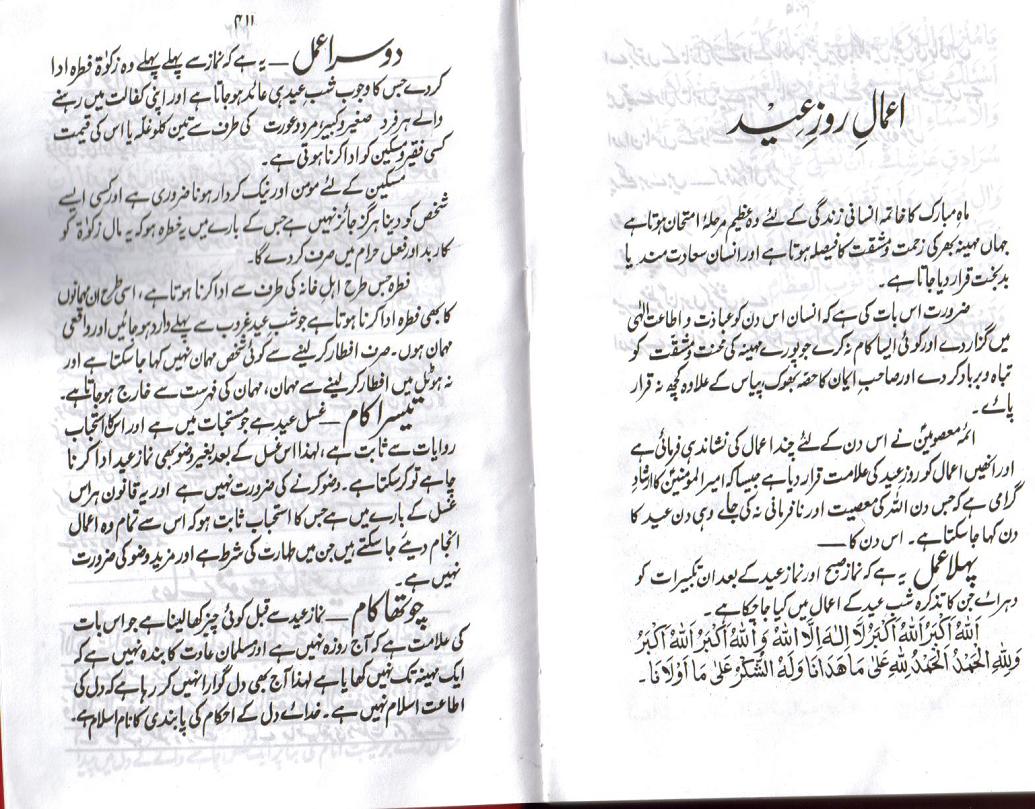 اعمالِ روزِ عید
ماہِ مبارک کا خاتمہ انسانی زندگی کے لئے وہ عظیم مرحلۂ امتحان ہوتا ہے
جہاں مہینہ بھر کی زحمت و مشقت کا فیصلہ ہوتا ہے اور انسان سعادت مند یا
بدبخت قرار دیا جاتا ہے۔
ضرورت اس بات کی ہے کہ انسان اس دن کو عبادت و اطاعت الٰہی
میں گزار دے اور کوئی ایسا کام نہ کرے جو پورے مہینہ کی محنت و مشقت کو
تباہ و برباد کر دے اور صاحبِ ایمان کا حصّہ بھوک پیاس کے علاوہ کچھ نہ قرار
پائے۔
ائمہ معصومینؑ نے اس دن کے لئے چند اعمال کی نشاندہی فرمائی ہے
اور انھیں اعمال کو روزِ عید کی علامت قرار دیا ہے جیسا کہ امیر المومنینؑ کا ارشادِ
گرامی ہے کہ جس دن اللہ کی معصیت اور نافرمانی نہ کی جائے وہی دن عید کا
دن کہا جا سکتا ہے۔ اس دن کا ــــ
پہلا عمل یہ ہے کہ نماز صبح اور نماز عید کے بعد ان تکبیرات کو
دہرائے جن کا تذکرہ شب عید کے اعمال میں کیا جا چکا ہے۔
اَللّٰهُ اَكْبَرُ اَللّٰهُ اَكْبَرُ لَا اِلٰهَ اِلَّا اللّٰهُ وَ اللّٰهُ اَكْبَرُ اَللّٰهُ اَكْبَرُ
وَلِلّٰهِ الْحَمْدُ اَلْحَمْدُ لِلّٰهِ عَلٰى مَا هَدَانَا وَلَهُ الشُّكْرُ عَلٰى مَا اَوْلَانَا۔
۴۱۱
دوسرا عمل ــ یہ ہے کہ نماز سے پہلے پہلے وہ زکوٰۃ فطرہ ادا
کر دے جس کا وجوب شب عید ہی عائد ہو جاتا ہے اور اپنی کفالت میں رہنے
والے ہر فرد صغیر و کبیر، مرد و عورت کی طرف سے تین کلو غلّہ یا اس کی قیمت
کسی فقیر و مسکین کو ادا کرنا ہوتی ہے۔
مسکین کے لئے مومن اور نیک کردار ہونا ضروری ہے اور کسی ایسے
شخص کو دینا ہرگز جائز نہیں ہے جس کے بارے میں یہ خطرہ ہو کہ یہ مال زکوٰۃ کو
کار بد اور فعل حرام میں صرف کر دے گا۔
فطرہ جس طرح اہل خانہ کی طرف سے ادا کرنا ہوتا ہے، اسی طرح ان مہمانوں
کا بھی فطرہ ادا کرنا ہوتا ہے جو شب عید غروب سے پہلے وارد ہو جائیں اور واقعی
مہمان ہوں۔ صرف افطار کر لینے سے کوئی شخص مہمان نہیں کہا جا سکتا ہے اور
نہ ہوٹل میں افطار کر لینے سے مہمان، مہمان کی فہرست سے خارج ہو جاتا ہے۔
تیسرا کام ــ غسل عید ہے جو مستحبات میں ہے اور اس کا استحباب
روایات سے ثابت ہے، لہٰذا اس غسل کے بعد بغیر وضو بھی نماز عید ادا کرنا
چاہے تو کر سکتا ہے۔ وضو کرنے کی ضرورت نہیں ہے اور یہ قانون ہر اس
غسل کے بارے میں ہے جس کا استحباب ثابت ہو کہ اس سے تمام وہ اعمال
انجام دیئے جا سکتے ہیں جن میں طہارت کی شرط ہے اور مزید وضو کی ضرورت
نہیں ہے۔
چوتھا کام ــ نماز عید سے قبل کوئی چیز کھا لینا ہے جو اس بات
کی علامت ہے کہ آج روزہ نہیں ہے اور مسلمان عادت کا بندہ نہیں ہے کہ
ایک مہینہ تک نہیں کھایا ہے لہٰذا آج بھی دل گوارا نہیں کر رہا ہے کہ دل کی
اطاعت اسلام نہیں ہے۔ خدائے دل کے احکام کی پابندی کا نام اسلام ہے۔